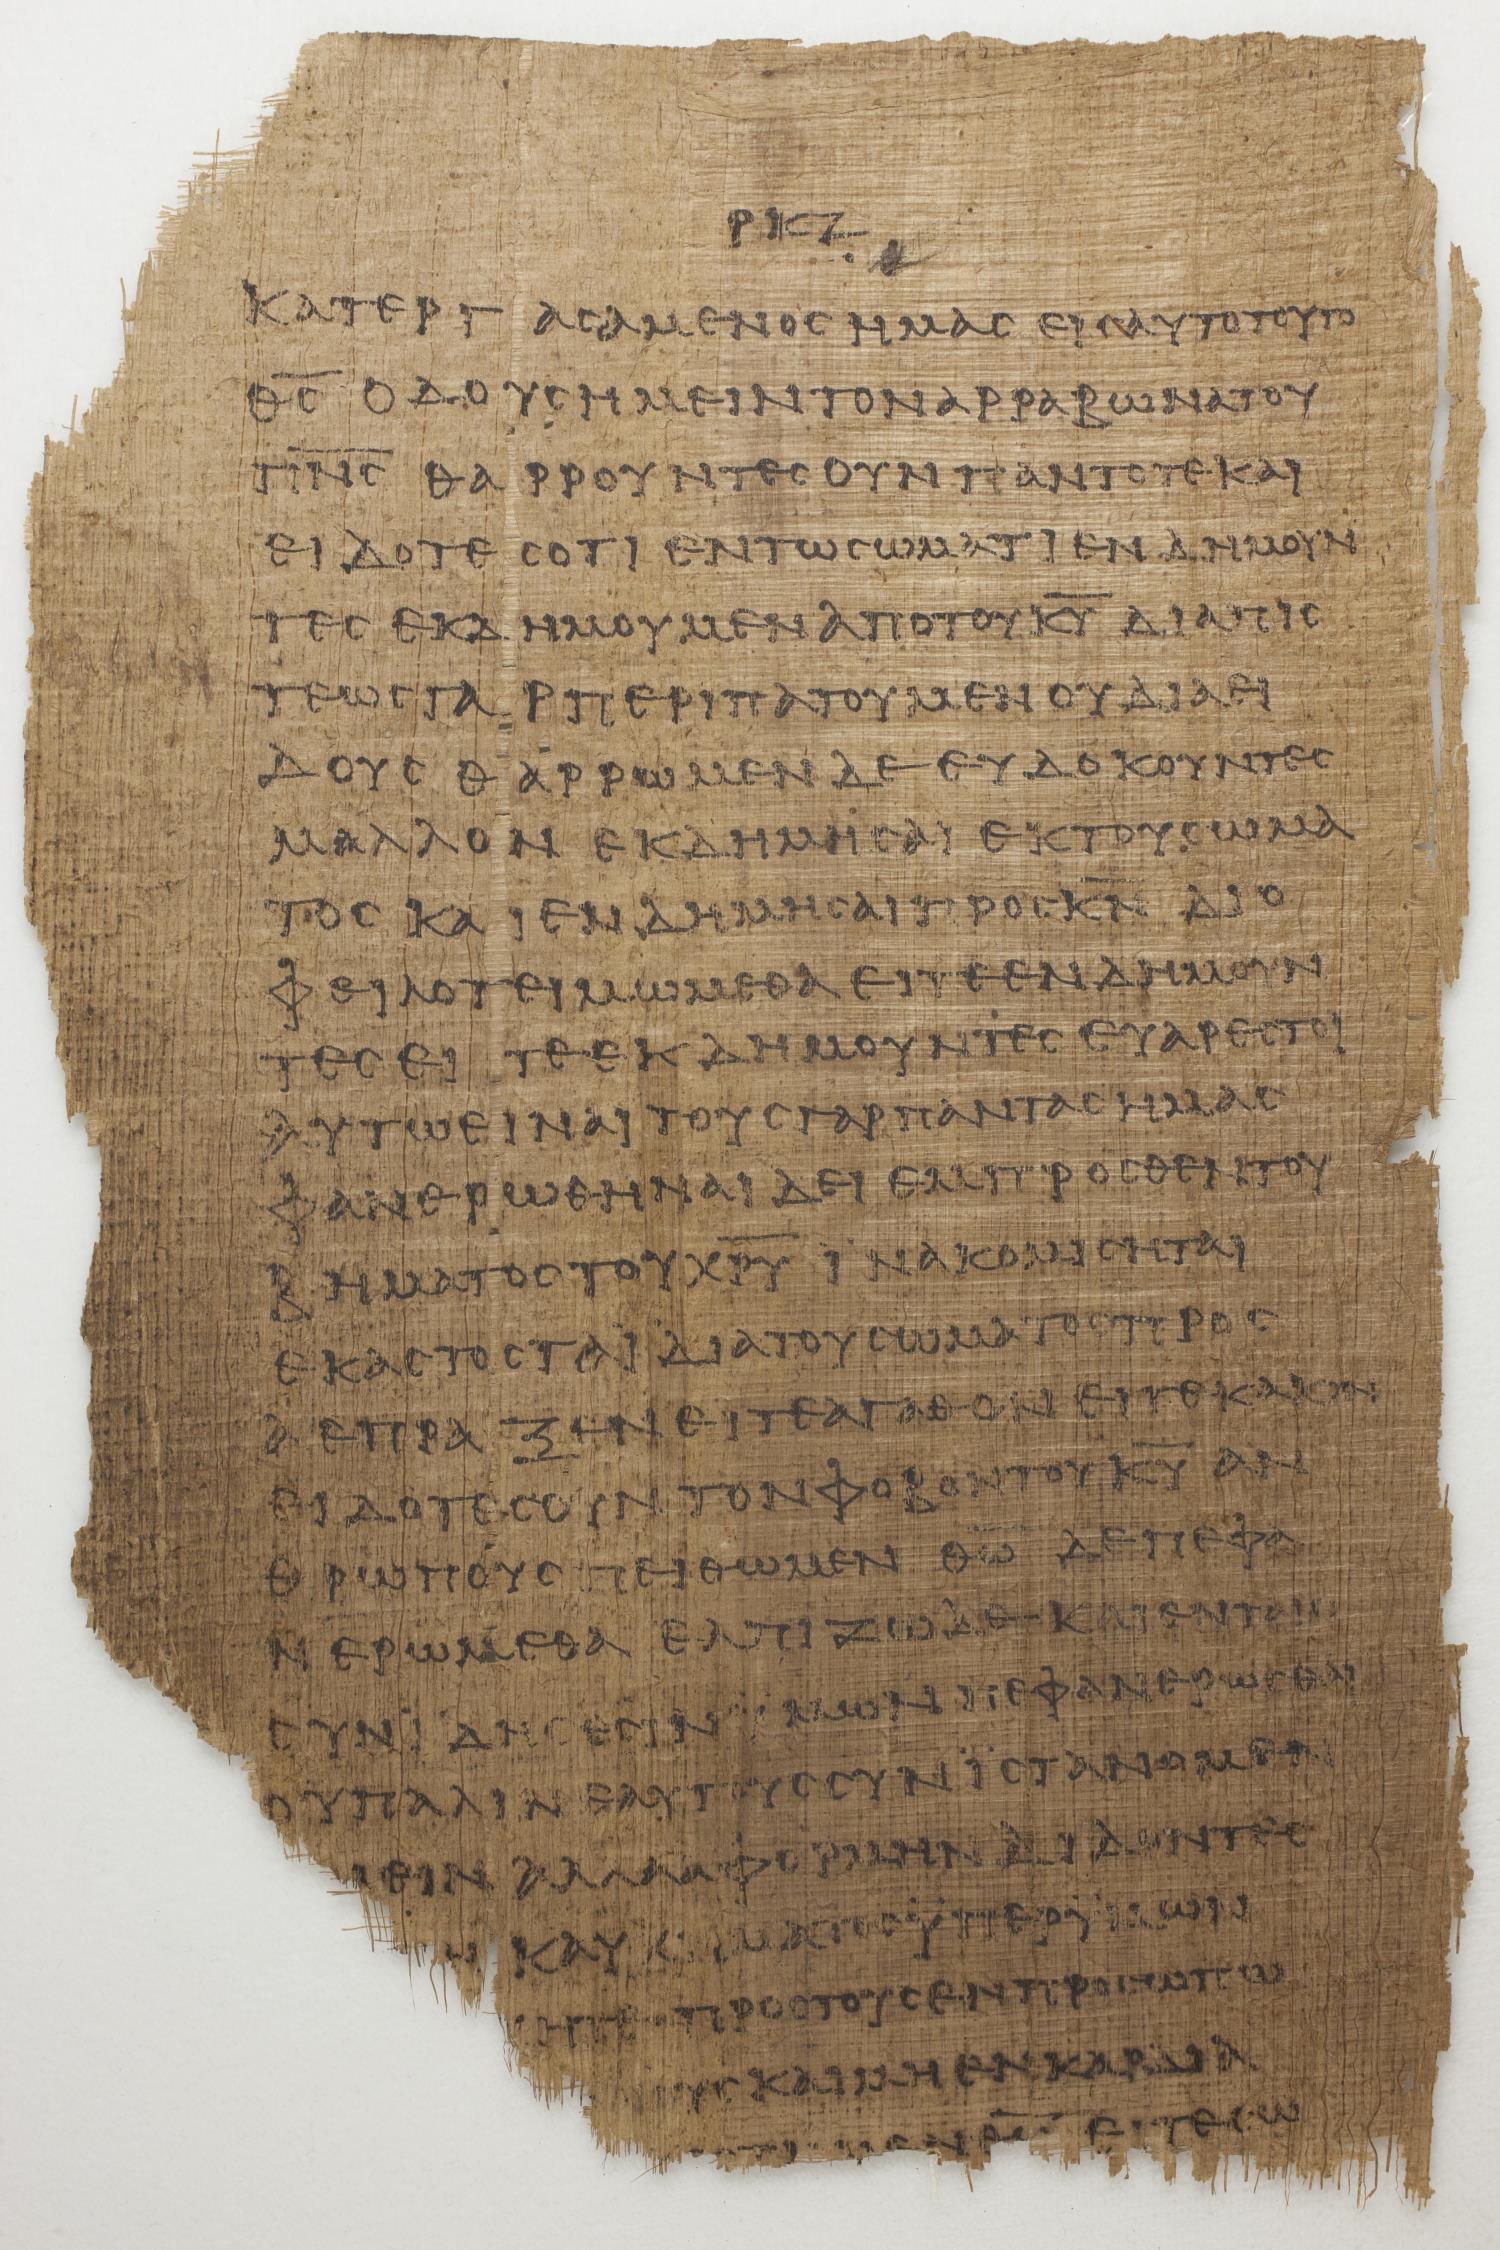 ΡΚΖ
ΚΑΤΕΡΓΑCΑΜΕΝΟC ΗΜΑC ΕΙC ΑΥΤΟ ΤΟΥΤΟ
Θ̅C̅ Ο ΔΟΥC ΗΜΕΙΝ ΤΟΝ ΑΡΡΑΒΩΝΑ ΤΟΥ
Π̅Ν̅C̅ ΘΑΡΡΟΥΝΤΕC ΟΥΝ ΠΑΝΤΟΤΕ ΚΑΙ
ΕΙΔΟΤΕC ΟΤΙ ΕΝ ΤΩ CΩΜΑΤΙ ΕΝΔΗΜΟΥΝ
ΤΕC ΕΚΔΗΜΟΥΜΕΝ ΑΠΟ ΤΟΥ Κ̅Υ̅ ΔΙΑ ΠΙC
ΤΕΩC ΓΑΡ ΠΕΡΙΠΑΤΟΥΜΕΝ ΟΥ ΔΙΑ ΕΙ
ΔΟΥC ΘΑΡΡΩΜΕΝ ΔΕ ΕΥΔΟΚΟΥΝΤΕC
ΜΑΛΛΟΝ ΕΚΔΗΜΗCΑΙ ΕΚ ΤΟΥ CΩΜΑ
ΤΟC ΚΑΙ ΕΝΔΗΜΗCΑΙ ΠΡΟC Κ̅Ν̅ ΔΙΟ
ΦΕΙΛΟΤΕΙΜΩΜΕΘΑ ΕΙΤΕ ΕΝΔΗΜΟΥΝ
ΤΕC ΕΙΤΕ ΕΚΔΗΜΟΥΝΤΕC ΕΥΑΡΕCΤΟΙ
ΑΥΤΩ ΕΙΝΑΙ ΤΟΥC ΓΑΡ ΠΑΝΤΑC ΗΜΑC
ΦΑΝΕΡΩΘΗΝΑΙ ΔΕΙ ΕΜΠΡΟCΘΕΝ ΤΟΥ
ΒΗΜΑΤΟC ΤΟΥ Χ̅Ρ̅Υ̅ ΪΝΑ ΚΟΜΙCΗΤΑΙ
ΕΚΑCΤΟC ΤΑ ΪΔΙΑ ΤΟΥ CΩΜΑΤΟC ΠΡΟC
Α ΕΠΡΑΞΕΝ ΕΙΤΕ ΑΓΑΘΟΝ ΕΙΤΕ ΚΑΚΟΝ
ΕΙΔΟΤΕC ΟΥΝ ΤΟΝ ΦΟΒΟΝ ΤΟΥ Κ̅Υ̅ ΑΝ
ΘΡΩΠΟΥC ΠΕΙΘΩΜΕΝ Θ̅Ω̅ ΔΕ ΠΕΦΑ
ΝΕΡΩΜΕΘΑ ΕΛΠΙΖΩ ΔΕ ΚΑΙ ΕΝ ΤΑΙC
CΥΝΙΔΗCΕCΙΝ ΫΜΩΝ ΠΕΦΑΝΕΡΩCΘΑΙ
ΟΥ ΠΑΛΙΝ ΕΑΥΤΟΥC CΥΝΪCΤΑΝΟΜΕΝ
ΜΕΙΝ ΑΛΛΑ ΑΦΟΡΜΗΝ ΔΙΔΟΝΤΕC
Ν ΚΑΥΧΗΜΑΤΟC ΫΠΕΡ ΫΜΩΝ
ΧΗΤΕ ΠΡΟC ΤΟΥC ΕΝ ΠΡΟCΩΠΩ
ΟΥC ΚΑΙ ΜΗ ΕΝ ΚΑΡΔΙΑ
ΜΕΝ Θ̅Ω̅ ΕΙΤΕ CΩ